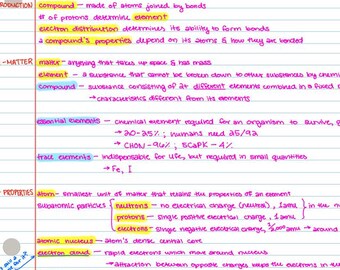 compound - made of atoms joined by bonds
# of protons determine element
electron distribution determines its ability to form bonds
a compound's properties depend on its atoms & how they are bonded
-MATTER- matter - anything that takes up space & has mass
element - a substance that cannot be broken down to other substances by
compound - substance consisting of at different elements combined in a fixed
→ characteristics different from its elements
essential elements - chemical element required for an organism to survive,
→ 20-25%; humans need 25/92
→ CHON - 96% ; SCaPK - 4%
trace elements - indispensable for life, but required in small quantities
→ Fe, I
PROPERTIES atom - smallest unit of matter that retains the properties of an element
subatomic particles { neutrons - no electrical charge (neutral), 1 amu } in the
protons - single positive electrical charge, 1 amu
electrons - single negative electrical charge, 1/2,000 amu → around
atomic nucleus - atom's dense central core
electron cloud - rapid electrons which move around nucleus
→ attraction between opposite charges keeps the electrons in the